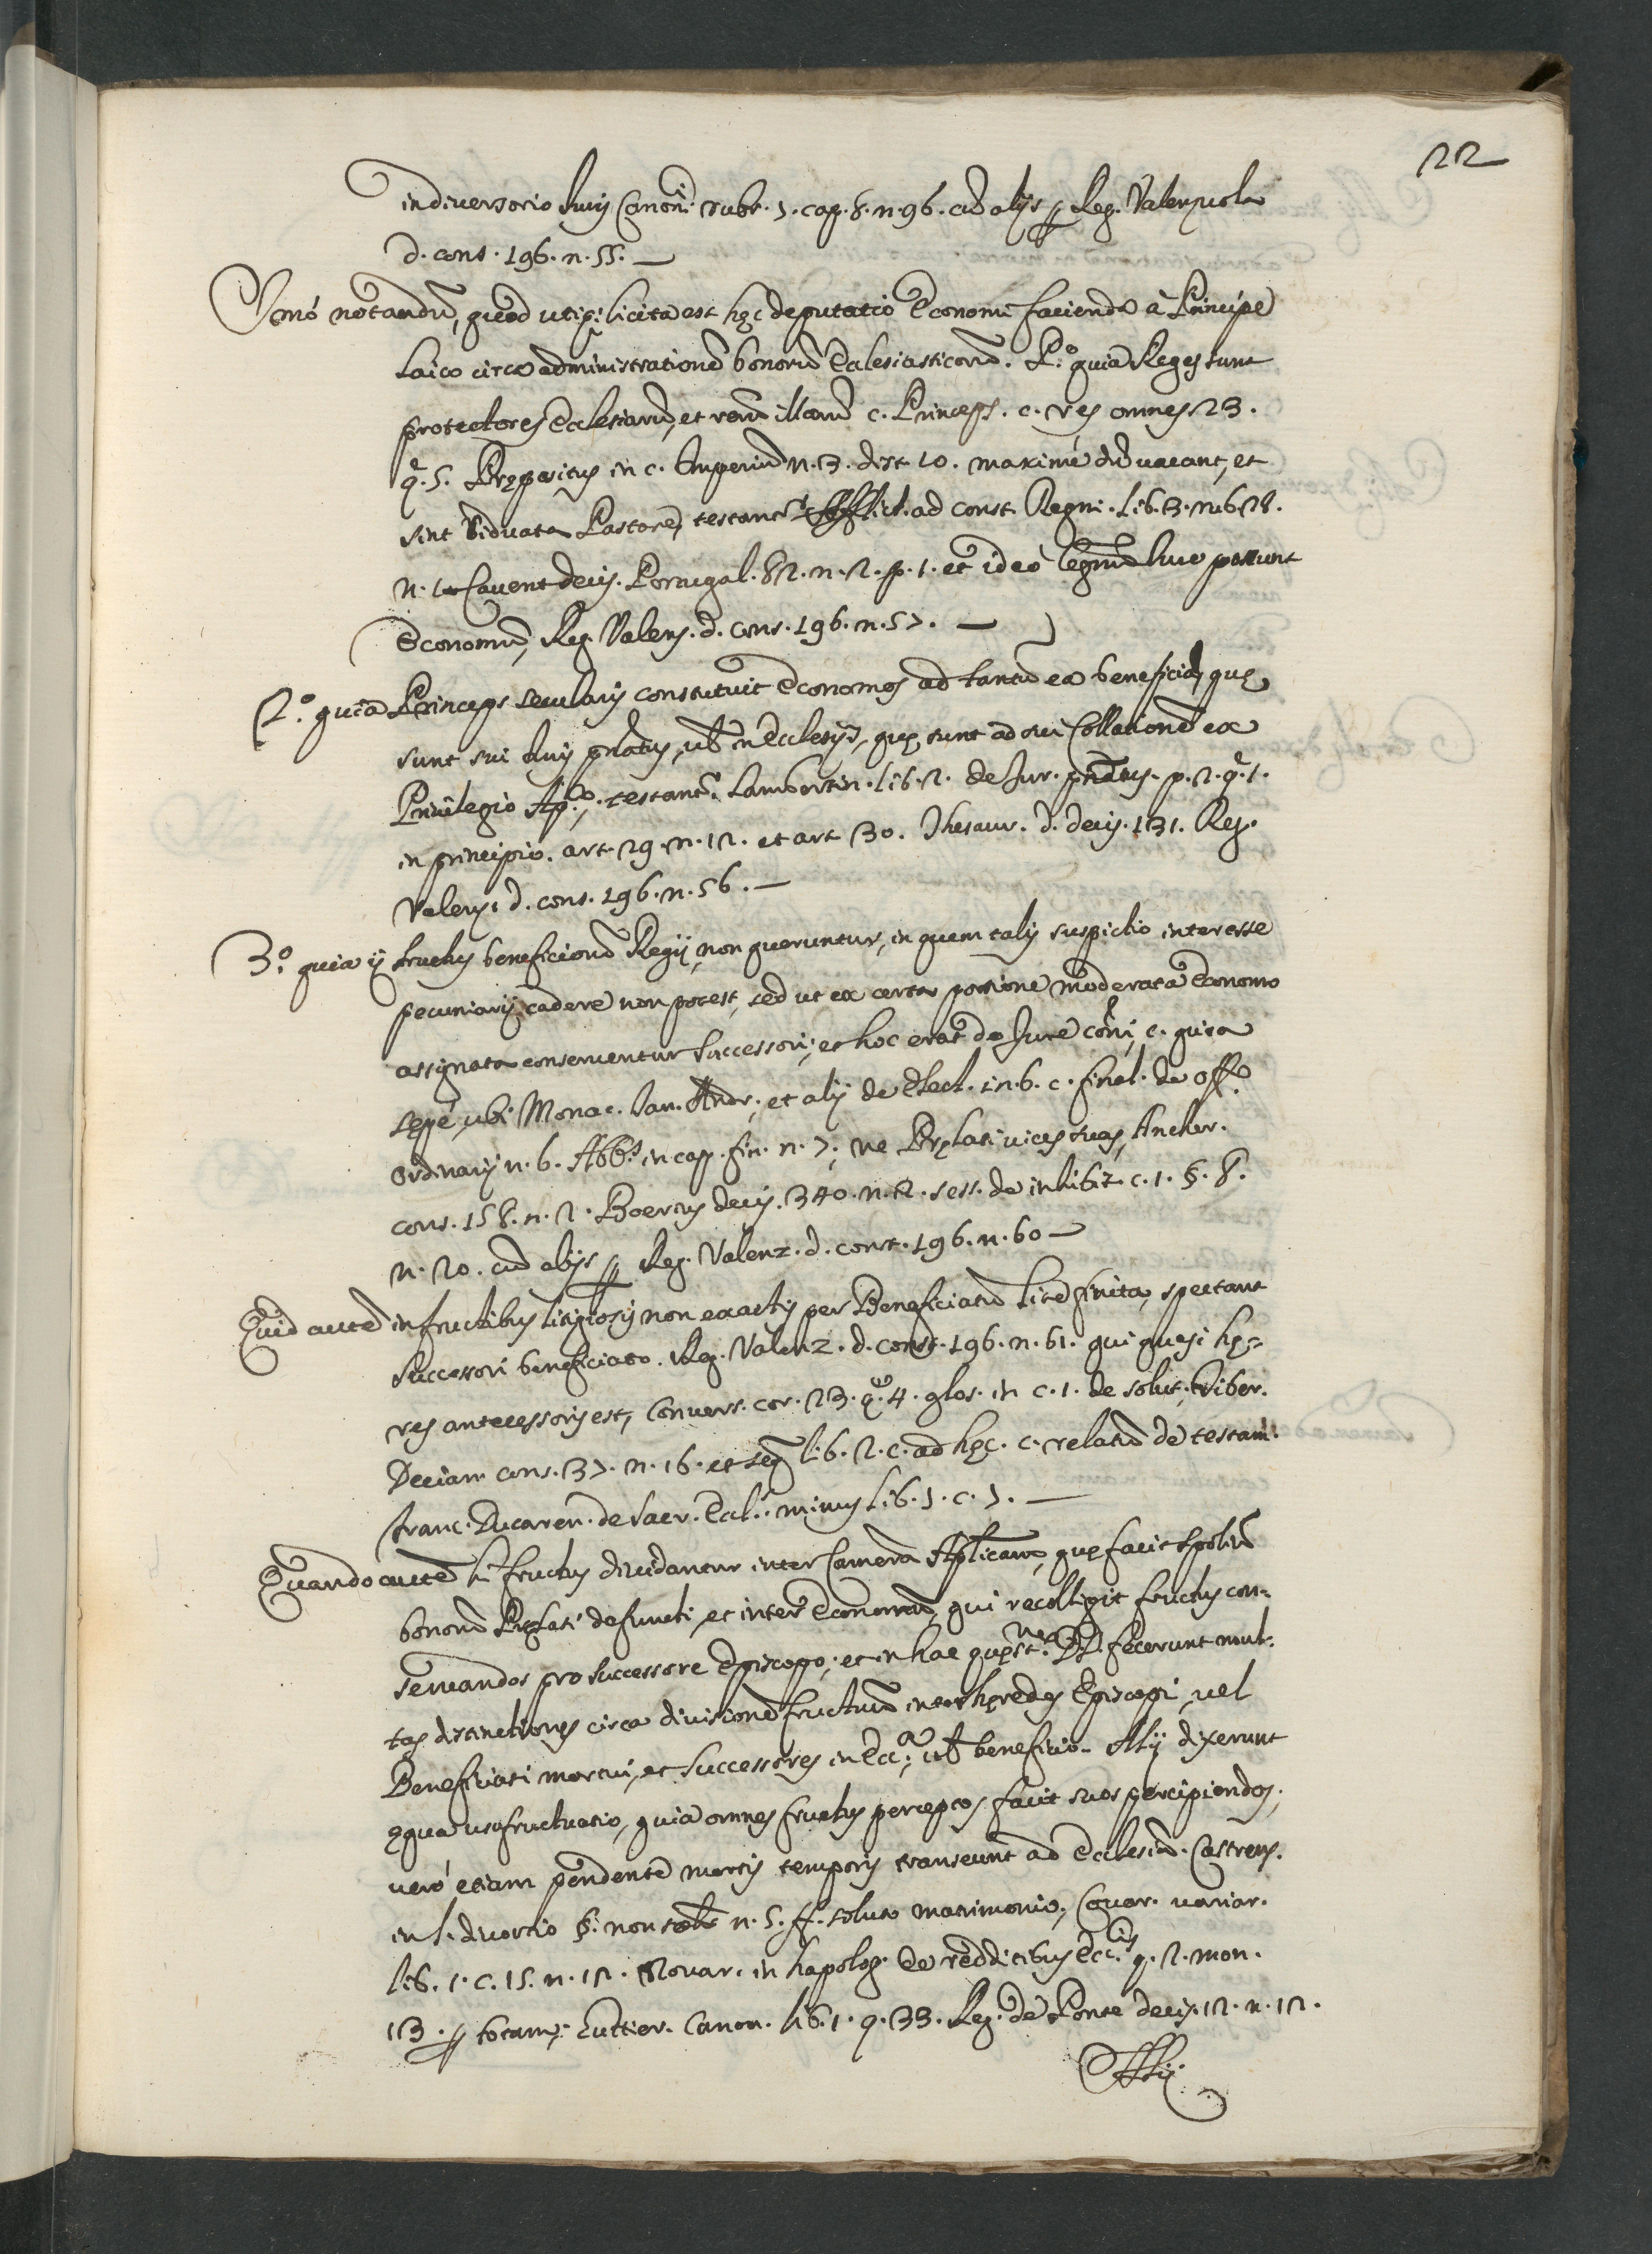 22
in diversorio Iuris Canoni: rubr. 7. cap. 8. n. 96. cū alijs Reg. Valenzuola
d. cons. 196. n. 55.
Imò notandū, quod utiq; licita est hęc deputatio Economi facienda à Principe
Laico circa administrationē bonorū Ecclesiasticorū. P.º quia Reges sunt
protectores Ecclesiarū, et rerū illarū c. Princeps. c. res omnes 23.
q. 5. Prępositus in c. Imperiū n. 3. dist. 10. maximè dū vacant, et
sint Viduata Pastore, testant.r Afflict. ad const. Regni. lib. 3. rub 28.
n. 1 Cavent decis. Portugal. 82. n. 2. p. 1. et ideò possunt
Economū, Reg. Valens. d. cons. 196. n. 57.
2.º quia Princeps secularis constituit Economos ad tantū ea beneficia, quę
sunt sui Iuris pñatus, vel in Ecclesijs, quę sunt ad sui Collationē ex
Privilegio Ap.co, testant.r Lambertin. lib. 2. de Iur. pñatus. p. 2. q. 1.
in principio. art. 29. n. 12. et art 30. Thesaur. d. decis. 131. Reg.
Valens. d. cons. 196. n. 56.
3.º quia ij fructus beneficiorū Regij, non queruntur, in quem talis suspictio interesse
pecuniarij cadere non potest, sed ut ex certa portione moderata Economo
assignata conserventur Successori; et hoc erat de Iure cōni, c. quia
sępè, ubi Monac. Ian. Andr. et alij de Elect. in. 6. c. final. de off.o
Ordinarij n. 6. Abb.s in cap. fin. n. 7; ne Pręlati vices suas, Ancher.
cons. 158. n. 2. Boerius decis. 340. n. 2. sess. de inhibit. c. 1. §. 8.
n. 20. cū alijs Reg. Valenz. d. cons. 196. n. 60
Quid autē in fructibus litigiosis non exactis per Beneficiatū lite finita, spectant
Successori beneficiato. Reg. Valenz. d. const. 196. n. 61. qui quasi hę=
res antecessoris est, Convers. cor. 23. q. 4. glos. in c. 1. de solut. Tiber.
Decian. cons. 37. n. 16. et seq. lib. 2. c. ad hęc. c. relatū de testam.
Franc. Ducaren. de Sacr. Eccl. minus lib. 1. c. 7.
Quando autē hi fructus dividantur inter Camerā Aplicam, quę facit spoliū
bonorū Pręlati defuncti, et inter Economū, qui recolligit fructus con=
servandos pro successore Episcopo; et in hac quęst.ne DD. fecerunt mul=
tas distinctiones circa divisionē fructuū inter hęredes Episcopi, vel
Beneficiati mortui, et successores in Ecc.a; vel beneficio. Alij dixerunt
ęqua usufructuario, quia omnes fructus perceptos facit suos percipiendos;
verò etiam pendente mortis temporis transeunt ad Ecclesiā. Castrens.
in l. divortio §. non solū n. 5. ff. soluto matrimonio, Covar. variar.
lib. 1. c. 15. n. 12. Navar. in hapolog. de redditibus Ecc.is q. 2. mon.
13. totam; Gutier. Canon. lib. 1. q. 33. Reg. de Ponte decis. 12. n. 12.
Alij